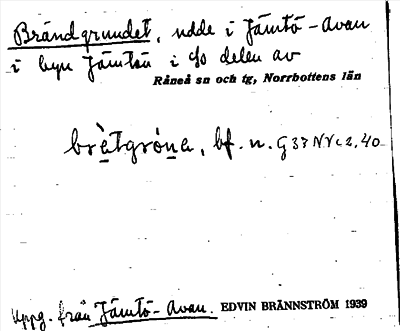 Brändgrundet, udde i Jämtö-Avan
i byn Jämtön i sö delen av
Råneå sn och tg, Norrbottens län
brètgróna, bf. n. G 33 NV c 2, 40
Uppg. från Jämtö-Avan. EDVIN BRÄNNSTRÖM 1939